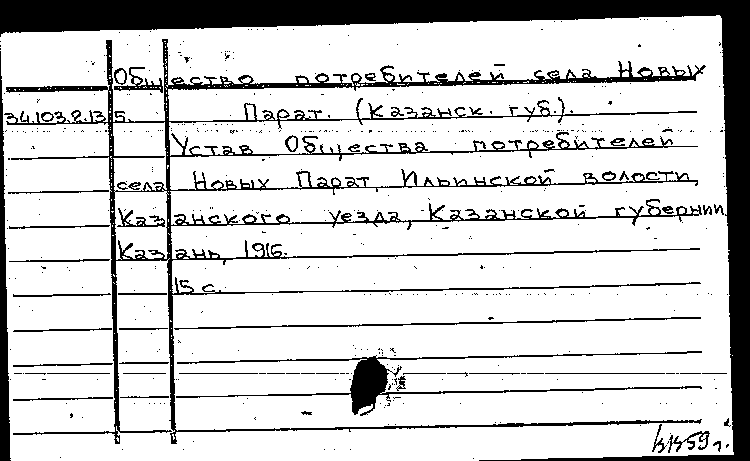 Общество потребителей села Новых
34.103.2.135. Парат. (Казанск. губ.).
Устав Общества потребителей
села Новых Парат, Ильинской волости,
Казанского уезда, Казанской губернии
Казань, 1916.
15 с.